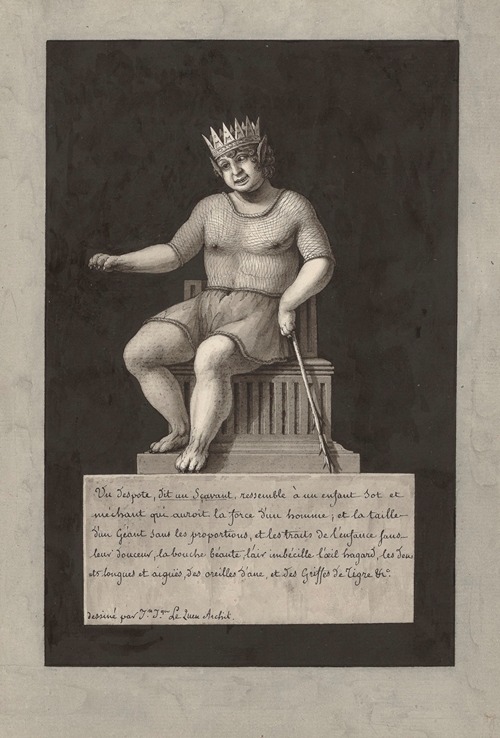 Un despote, dit un Sçavant, ressemble à un enfant sot et
méchant qui auroit la force d'un homme; et la taille
d'un Géant sans les proportions, et les traits de l'enfance sans
leur douceur, la bouche béante, l'air imbécille l'œil hagard, les den
ts longues et aiguës, des oreilles d'ane, et des Griffes de Tigre &c.
dessiné par Jn Jq Le Queu Archit.